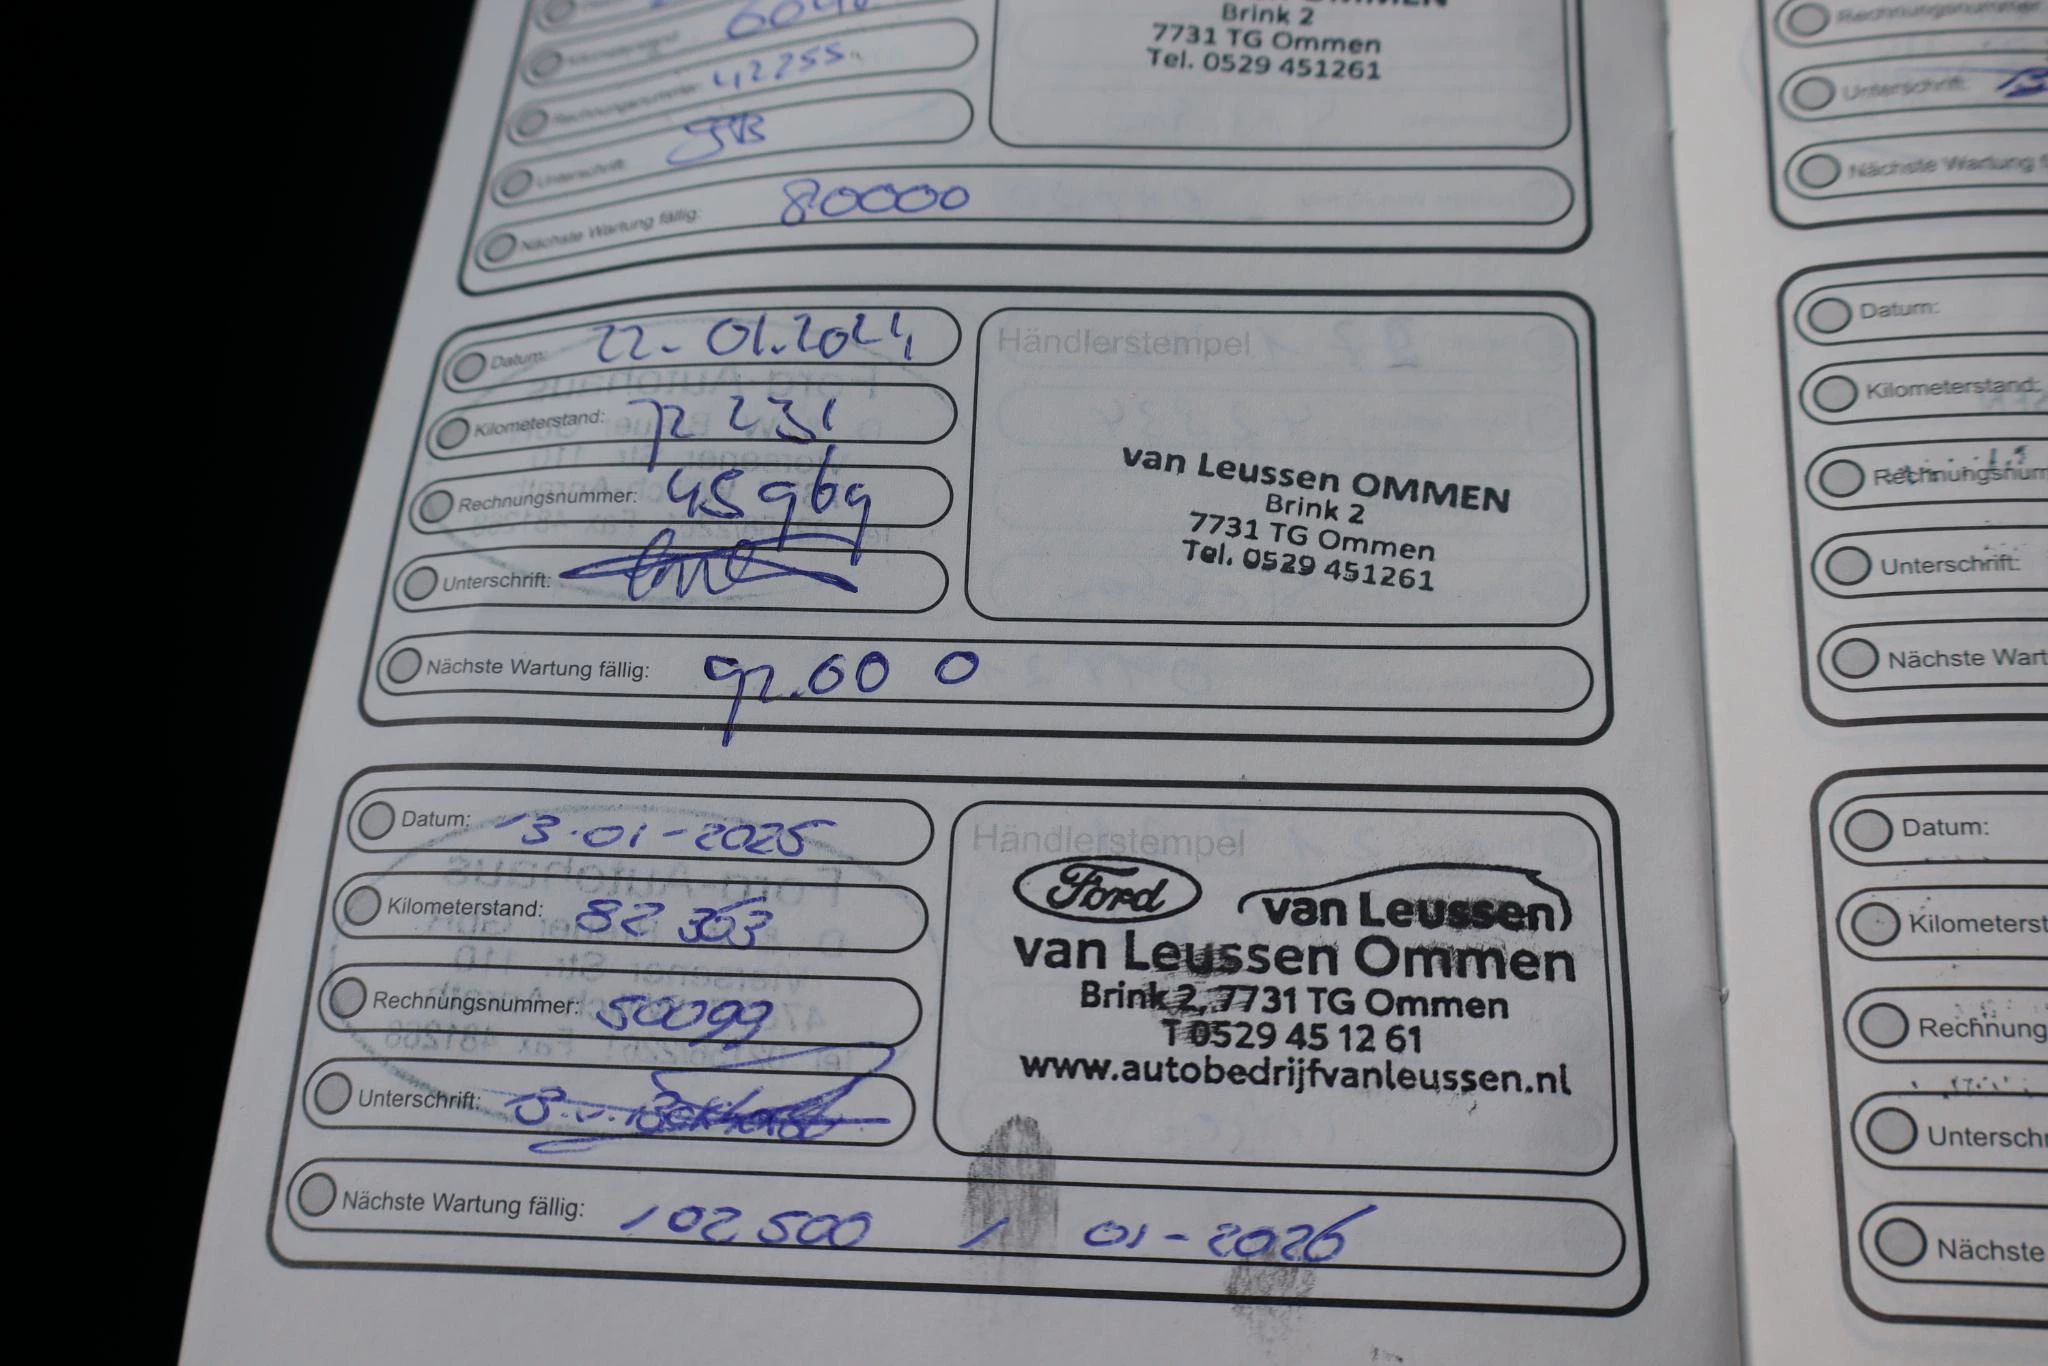 Brink 2
7731 TG Ommen
Tel. 0529 451261
Rechnungsnummer: 42255
Unterschrift:
Nächste Wartung fällig: 80000
Datum: 22-01.2024
Kilometerstand: 72 231
Rechnungsnummer: 45969
Unterschrift:
Nächste Wartung fällig: 92.60 0
Händlerstempel
van Leussen OMMEN
Brink 2
7731 TG Ommen
Tel. 0529 451261
Datum: 13-01-2025
Kilometerstand: 82 363
Rechnungsnummer: 50099
Unterschrift:
Nächste Wartung fällig: 102 500 / 01-2026
Händlerstempel
Ford van Leussen
van Leussen Ommen
Brink 2, 7731 TG Ommen
T 0529 45 12 61
www.autobedrijfvanleussen.nl
Rechnungsnummer
Unterschrift:
Nächste Wartung
Datum:
Kilometerstand:
Rechnungsnum
Unterschrift:
Nächste Wart
Datum:
Kilometerst
Rechnung
Unterschr
Nächste